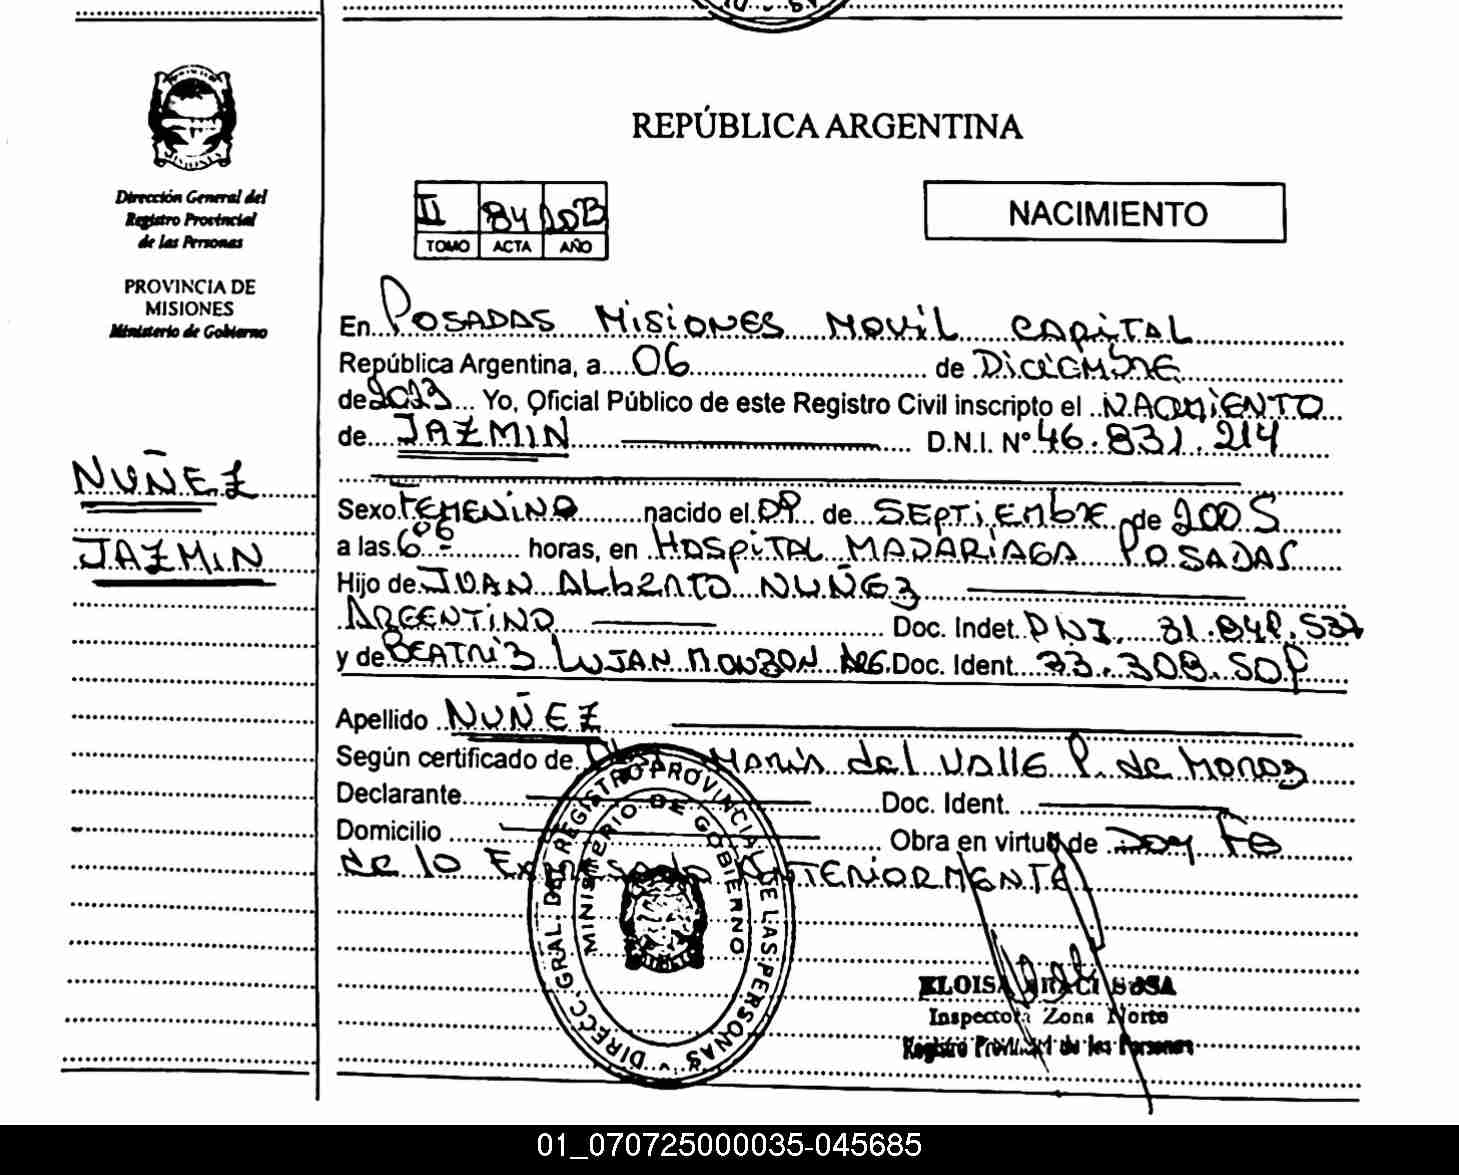 REPÚBLICA ARGENTINA
Dirección General del
Registro Provincial
de las Personas
PROVINCIA DE
MISIONES
Ministerio de Gobierno
II 84
TOMO ACTA AÑO
NACIMIENTO
NUÑEZ
JAZMIN
En POSADAS MISIONES MOVIL CAPITAL
República Argentina, a 06 de DICIEMBRE
de 2023 Yo, Oficial Público de este Registro Civil inscripto el NACIMIENTO
de JAZMIN D.N.I. Nº 46.831.214
Sexo FEMENINO nacido el 09 de SEPTIEMBRE de 2005
a las 6 06 horas, en HOSPITAL MADARIAGA POSADAS
Hijo de JUAN ALBERTO NUÑEZ
ARGENTINO Doc. Indet. DNI. 31.848.532
y de BEATRIZ LUJAN MONZON ARG. Doc. Ident. 33.308.509
Apellido NUÑEZ
Según certificado de MARIA del VALLE P. de
Declarante Doc. Ident.
Domicilio Obra en virtud de Doy Fe
de lo Expresado ANTERIORMENTE
DIRECC. GRAL. DEL REGISTRO PROVINCIAL DE LAS PERSONAS
MINISTERIO DE GOBIERNO
ELOISA SOSA
Inspectora Zona Norte
Registro Provincial de las Personas
01_070725000035-045685